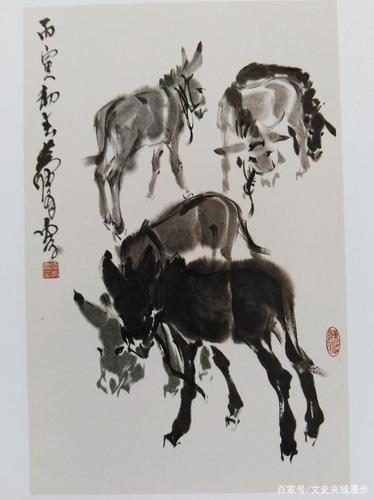 丙寅初春黄胄写
百家号/文史夹缝漫步